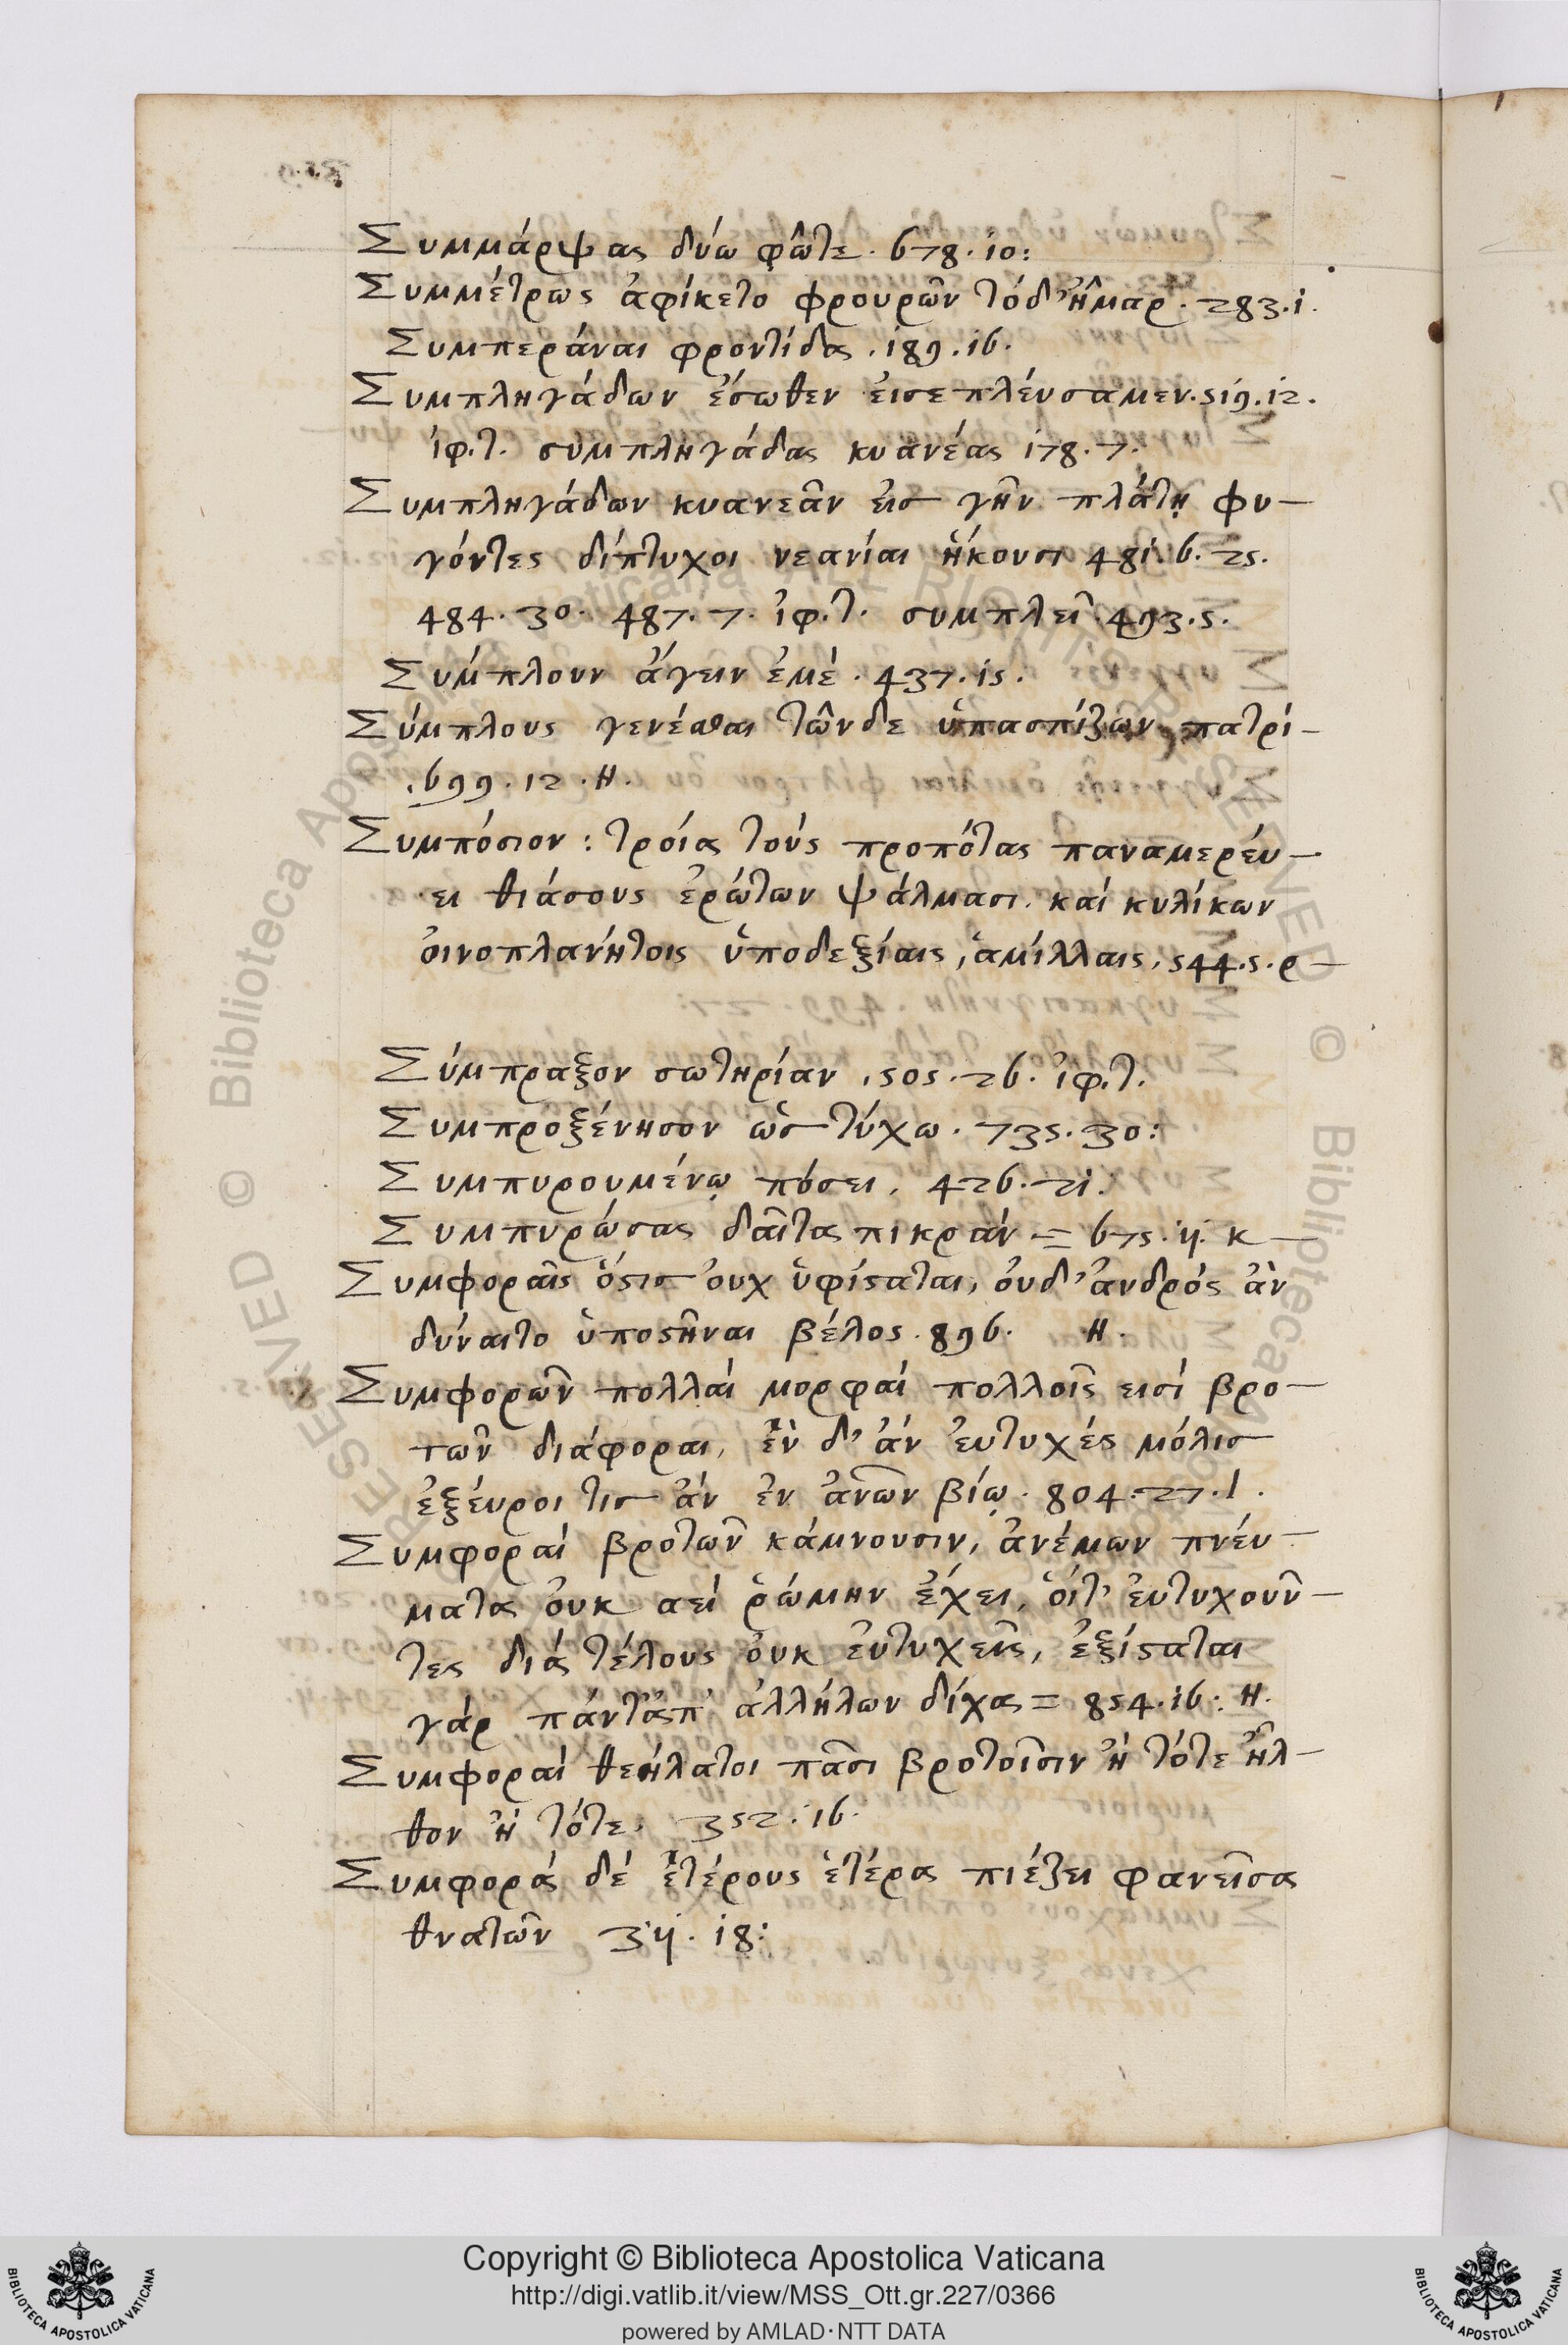 Συμμάρψας δύω φῶτε. 678. 10:
Συμμέτρως ἀφίκετο φρουρῶν τόδ' ἦμαρ. 283. 1.
Συμπεράναι φροντίδα. 189. 16.
Συμπληγάδων ἔσωθεν εἰσεπλέυσαμεν. 519. 12.
ἰφ. τ. συμπληγάδας κυανέας 178. 7.
Συμπληγάδων κυανεᾶν εἰσ γῆν πλάτῃ φυ-
γόντες δίπτυχοι νεανίαι ἥκουσι 481. 6. 25.
484. 30. 487. 7. ἰφ. τ. συμπλεῖ. 493. 5.
Σύμπλουν ἄγειν ἐμέ. 437. 15.
Σύμπλους γενέσθαι τῶνδε ὑπασπίζων πατρί-
. 699. 12. Η.
Συμπόσιον: τροίας τούς προπότας παναμερέυ-
ει θιάσους ἐρώτων ψάλμασι. καί κυλίκων
ὀινοπλανήτοις ὑποδεξίαις, ἁμίλλαις, 544. 5. ρ-
Σύμπραξον σωτηρίαν, 505. 26. ἰφ. τ.
Συμπροξένησον ὡς τύχω. 735. 30:
Συμπυρουμένῳ πόσει, 426. 21.
Συμπυρώσας δαῖτας πικράν = 675. 11. κ-
Συμφοραῖς ὅστισ ὀυχ ὑφίσταται, ὀυδ' ἀνδρός ἂν
δύναιτο ὑποστῆναι βέλος. 896. Η.
Συμφορῶν πολλαί μορφαί πολλοῖς εισί βρο-
τῶν διάφοραι, ἓν δ' ἄν ἐυτυχές μόλισ
ἐξέυροι τισ ἄν ἐν ἀνῶν βίῳ. 804. 27. Ι.
Συμφοραί βροτῶν κάμνουσιν, ἀνέμων πνέυ-
ματα ὀυκ αεί ῥώμην ἔχει, ὅιτ' ἐυτυχοῦν-
τες διά τέλους ὀυκ ἐυτυχεῖς, ἐξίσταται
γάρ πάντ' ἀπ' ἀλλήλων δίχα = 854. 16: Η.
Συμφοραί θεήλατοι πᾶσι βροτοῖσιν ἤ τότε ἦλ-
θον ἤ τότε, 352. 16.
Συμφορά δέ ἑτέρους ἑτέρα πιέζει φανεῖσα
θνατῶν 311. 18:
Copyright © Biblioteca Apostolica Vaticana
http://digi.vatlib.it/view/MSS_Ott.gr.227/0366
powered by AMLAD·NTT DATA